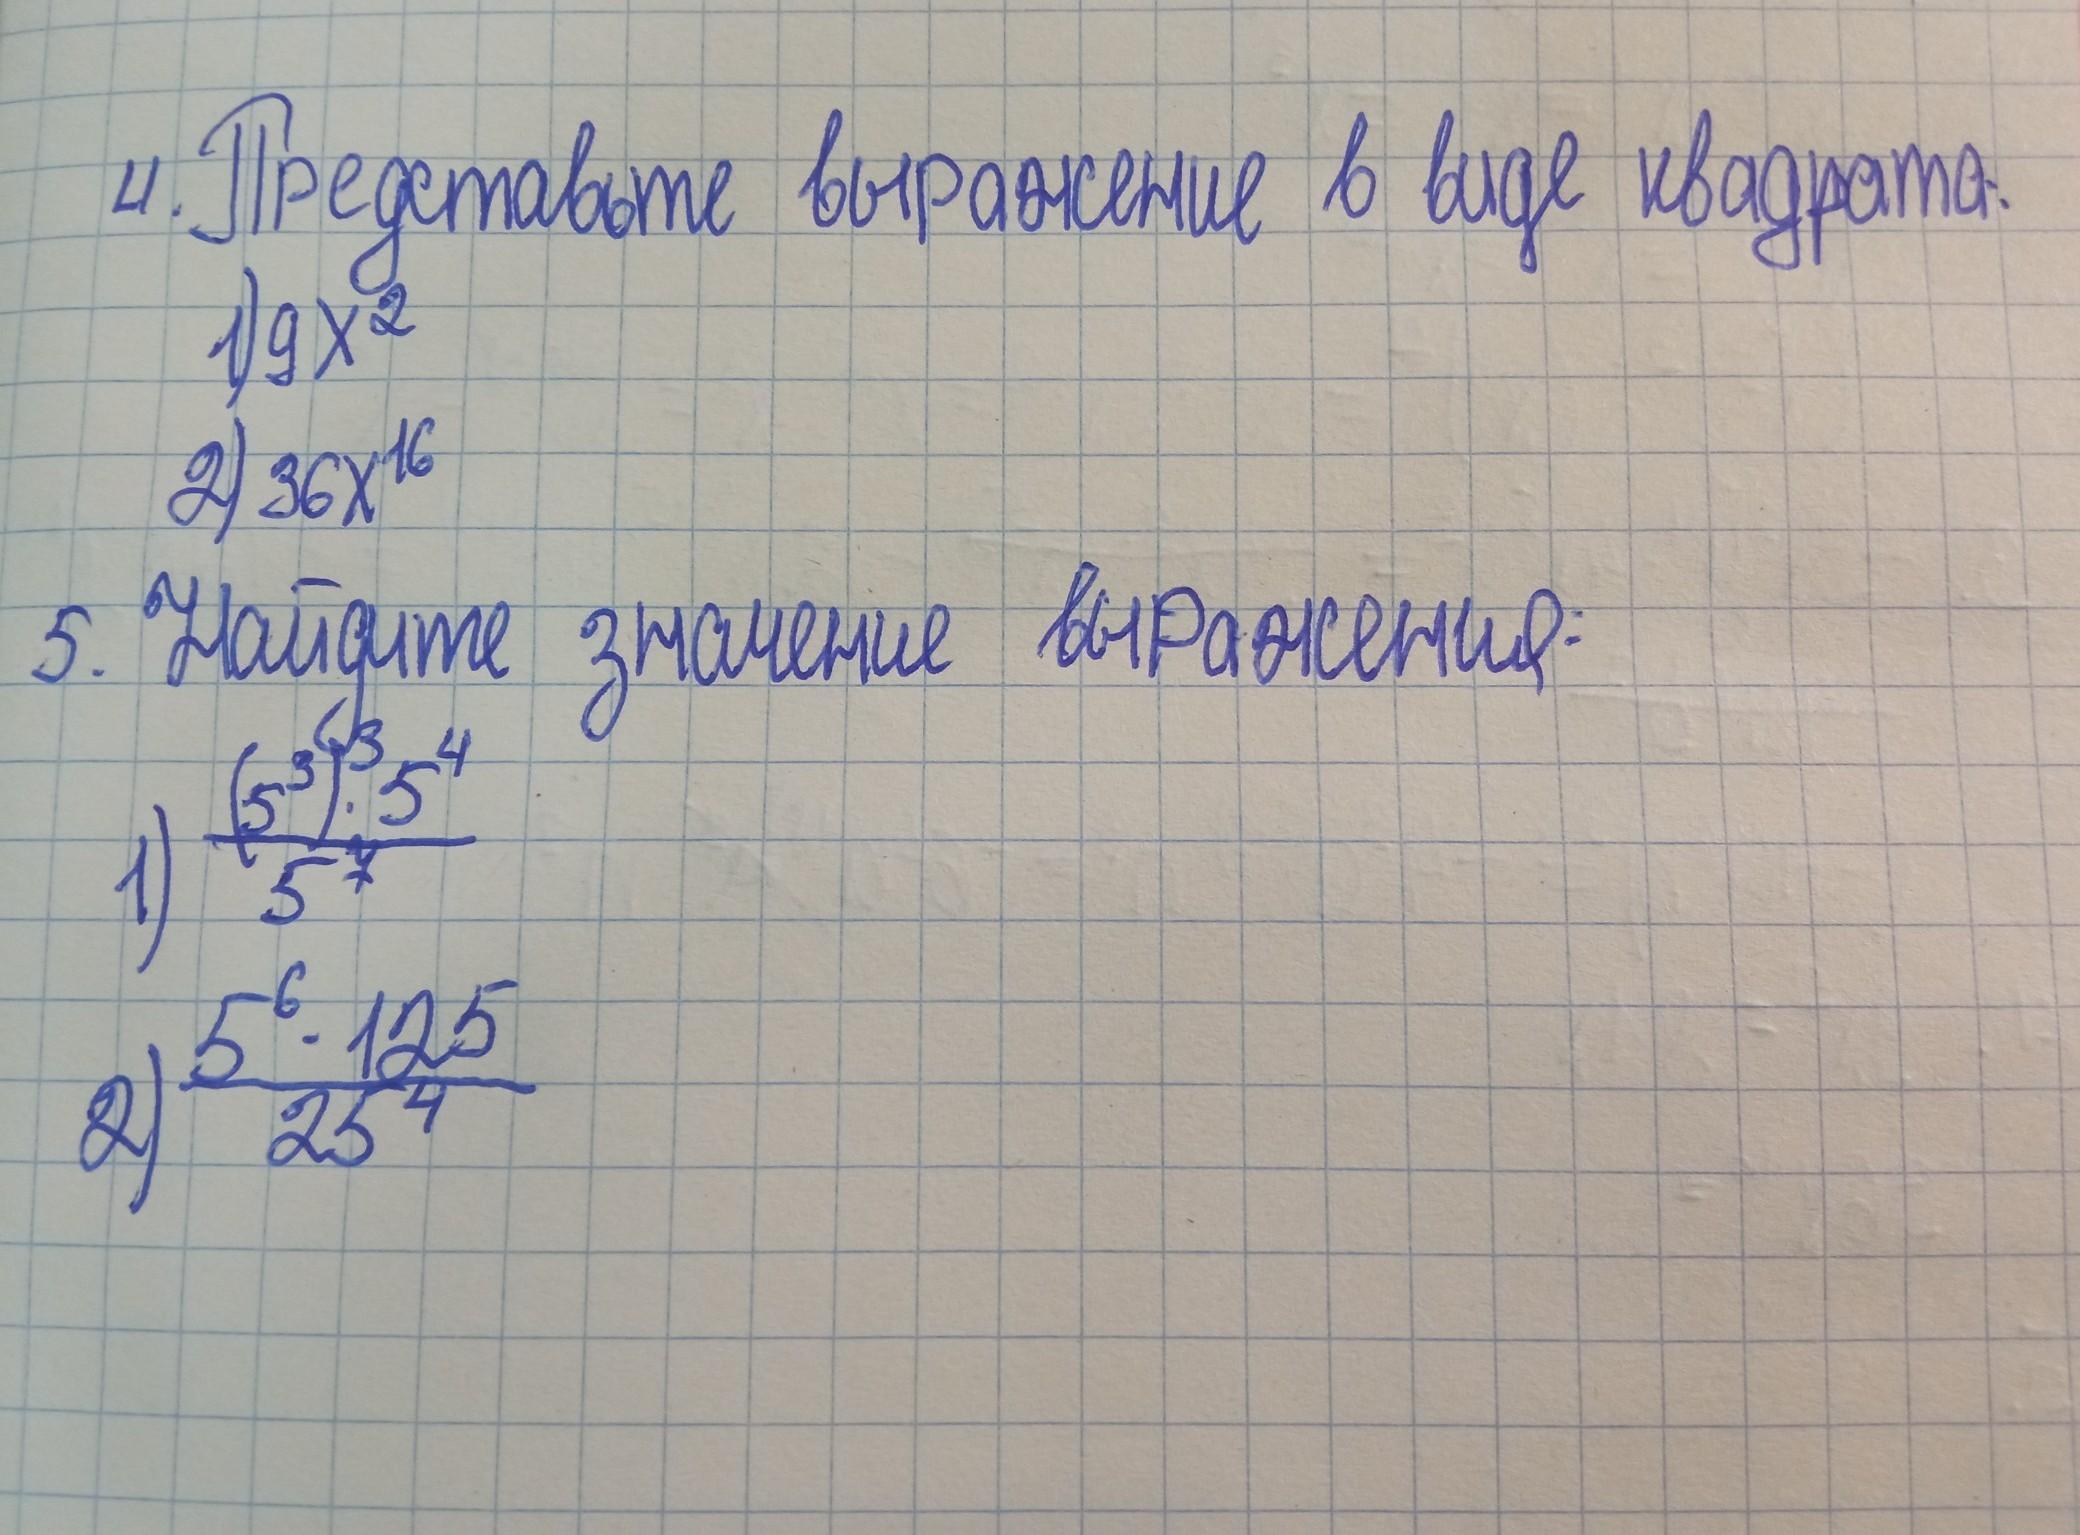 4. Представьте выражение в виде квадрата:
1) 9x²
2) 36x¹⁶
5. Найдите значение выражения:
1) (5³)³ · 5⁴ / 5⁷
2) 5⁶ · 125 / 25⁴